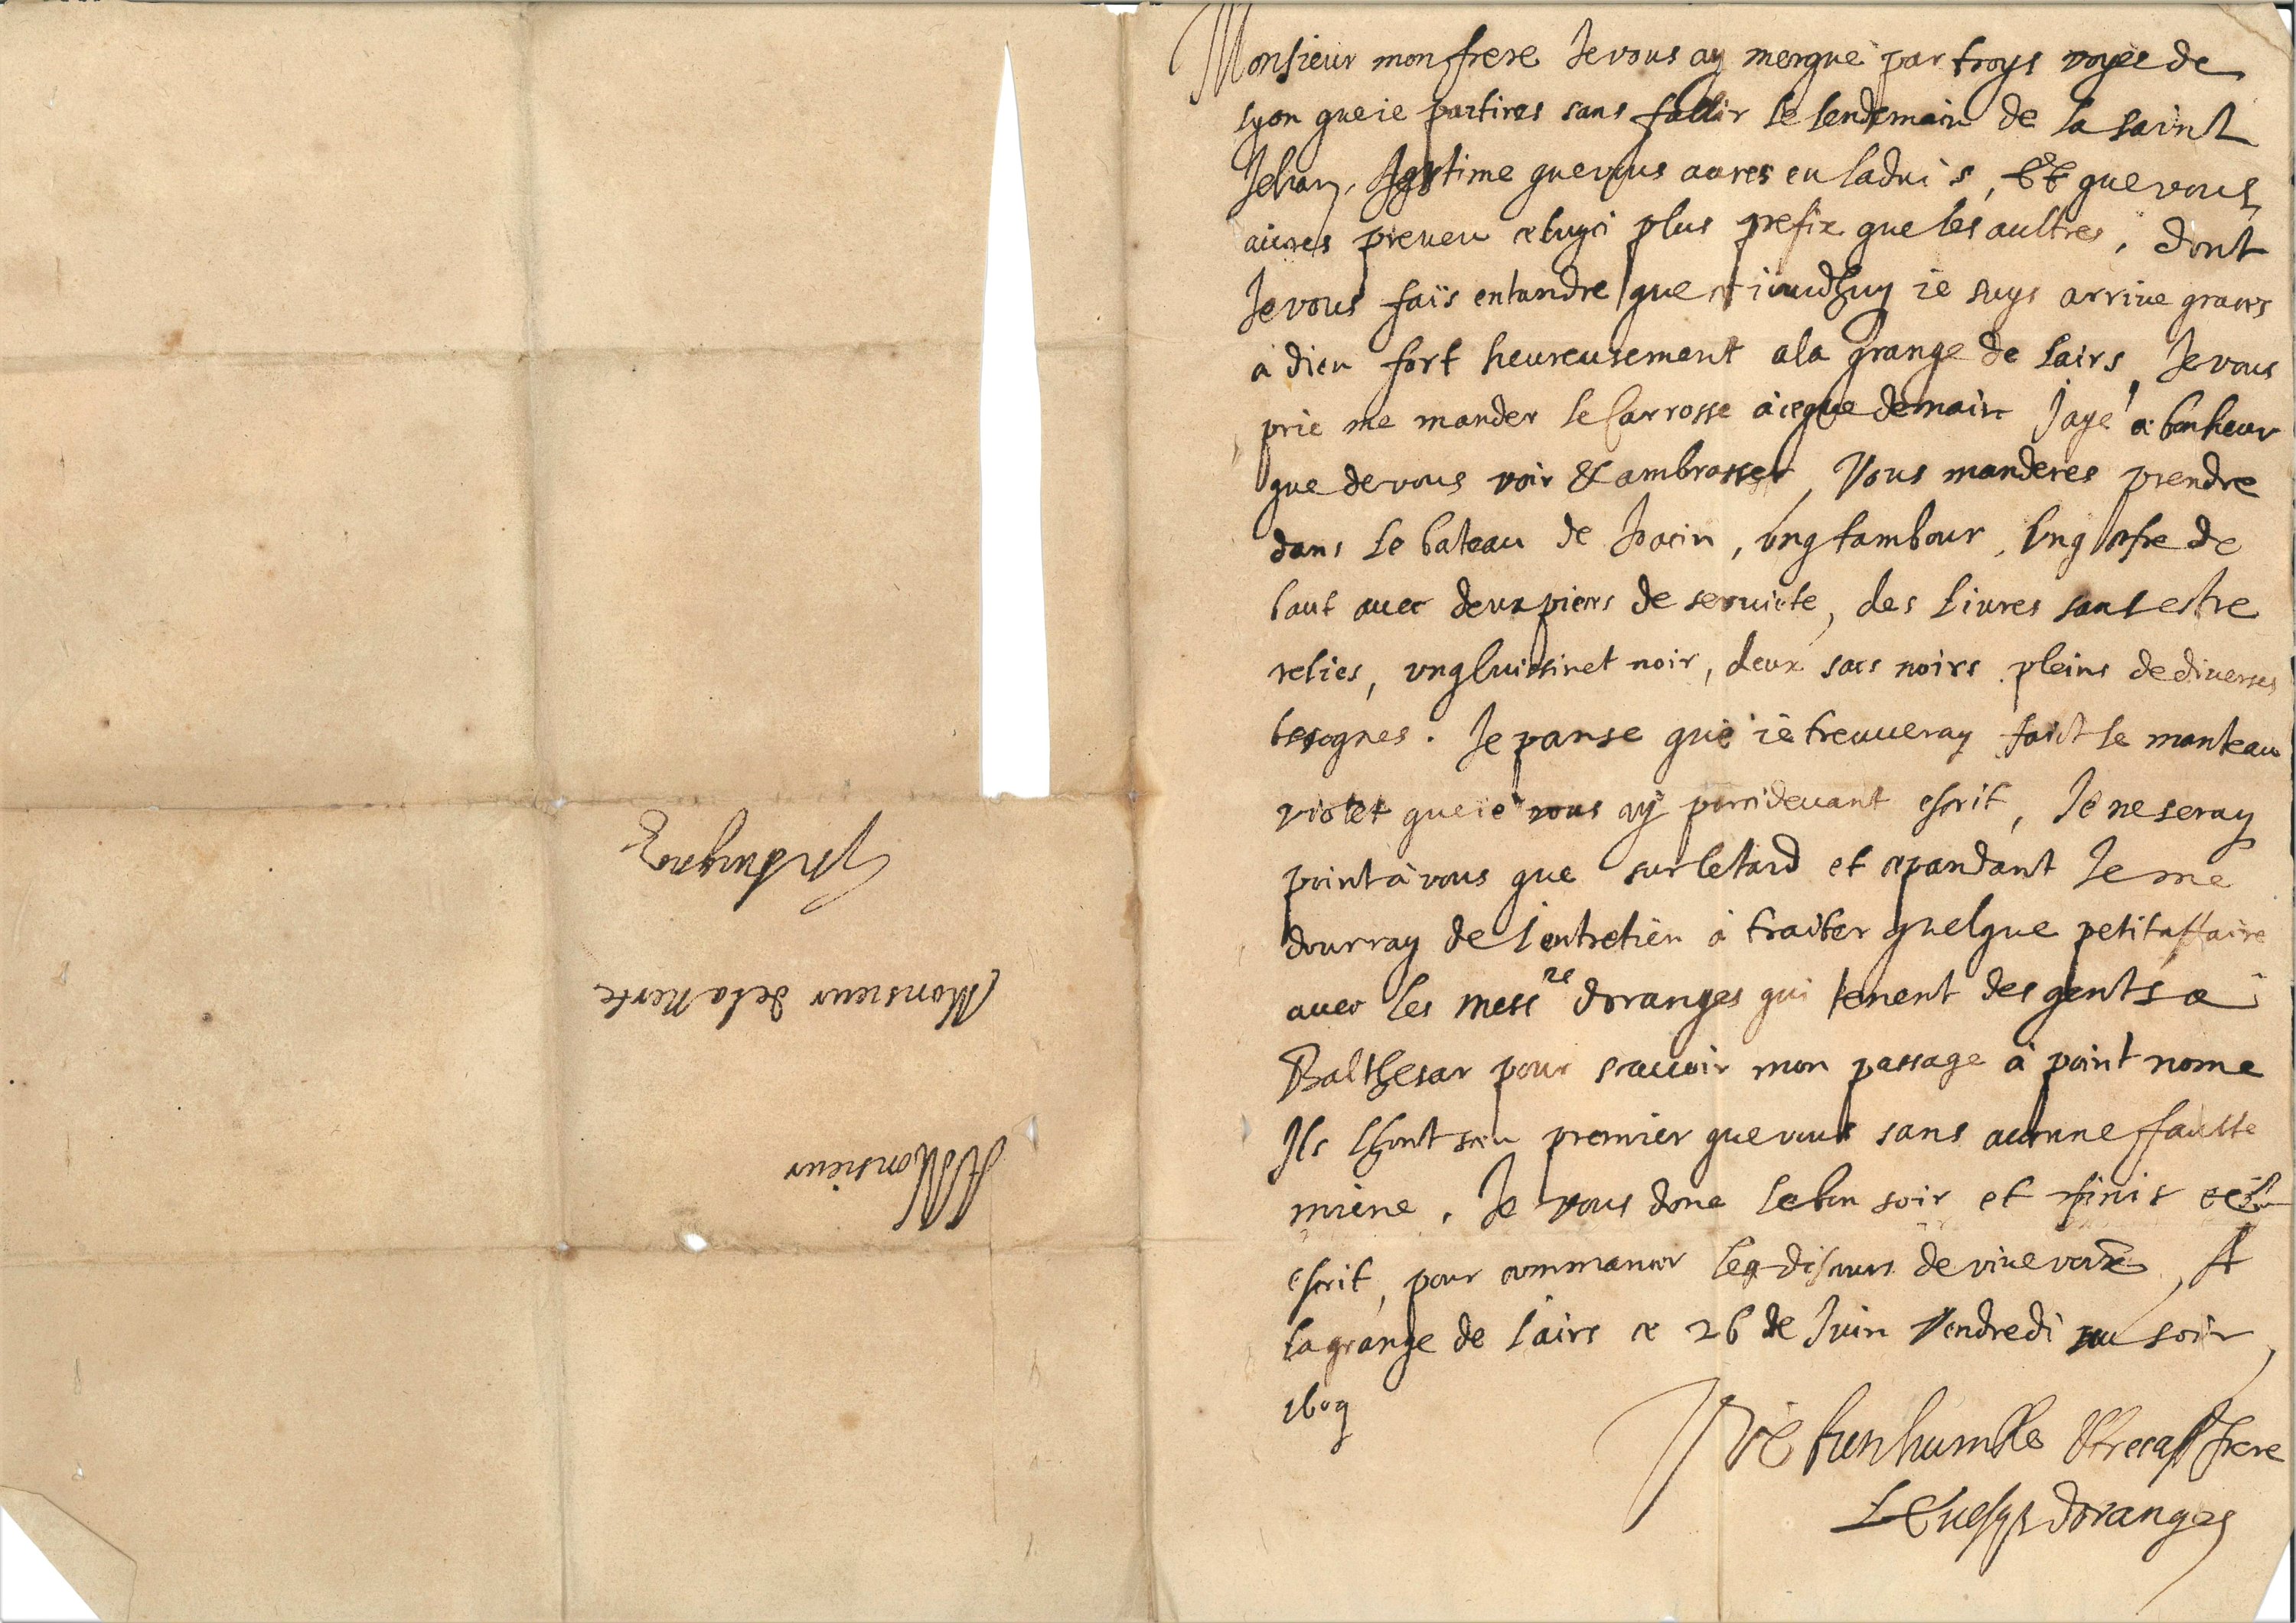 Monsieur mon frere Je vous ay merque par troys voyes de
Lyon que ie partires sans fallir le lendemain de la saint
Jehan, Jestime que vous aures eu ladvis, Et que vous
aures preveu celuyci plus prefix que les aultres, dont
Je vous fais entandre que ce iourdhuy ie suys arrive graces
à dieu fort heureusement a la grange de Lairs, Je vous
prie me mander le Carrosse à ce que demain Jaye ce bonheur
que de vous voir & ambrasser, Vous manderes prendre
dans le bateau de, ung tambour, Ung cofre de
avec deux pieces de serviete, des Livres sans estre
relies, ung noir, deux sacs noirs pleins de diverses
besognes. Je panse que ie trouveray faict le manteau
violet que ie vous ay parcidevant escrit, Je ne seray
point à vous que sur le tard et cepandant Je me
dourray de l'entretien à traiter quelque petit affaire
avec les mess.rs doranges qui tenent des gents ce
Balthesar pour scavoir mon passage à point nome
Ils lhont sceu premier que vous sans aucune faulte
miene. Je vous done le bon soir et finis
escrit, pour commancer les discours de vive voix, A
la grange de Lairs ce 26 de Juin Vendredi au soir,
1609
Vre bien humble & frere
LEvesque doranges
A Monsieur
Monsieur de la Nerte